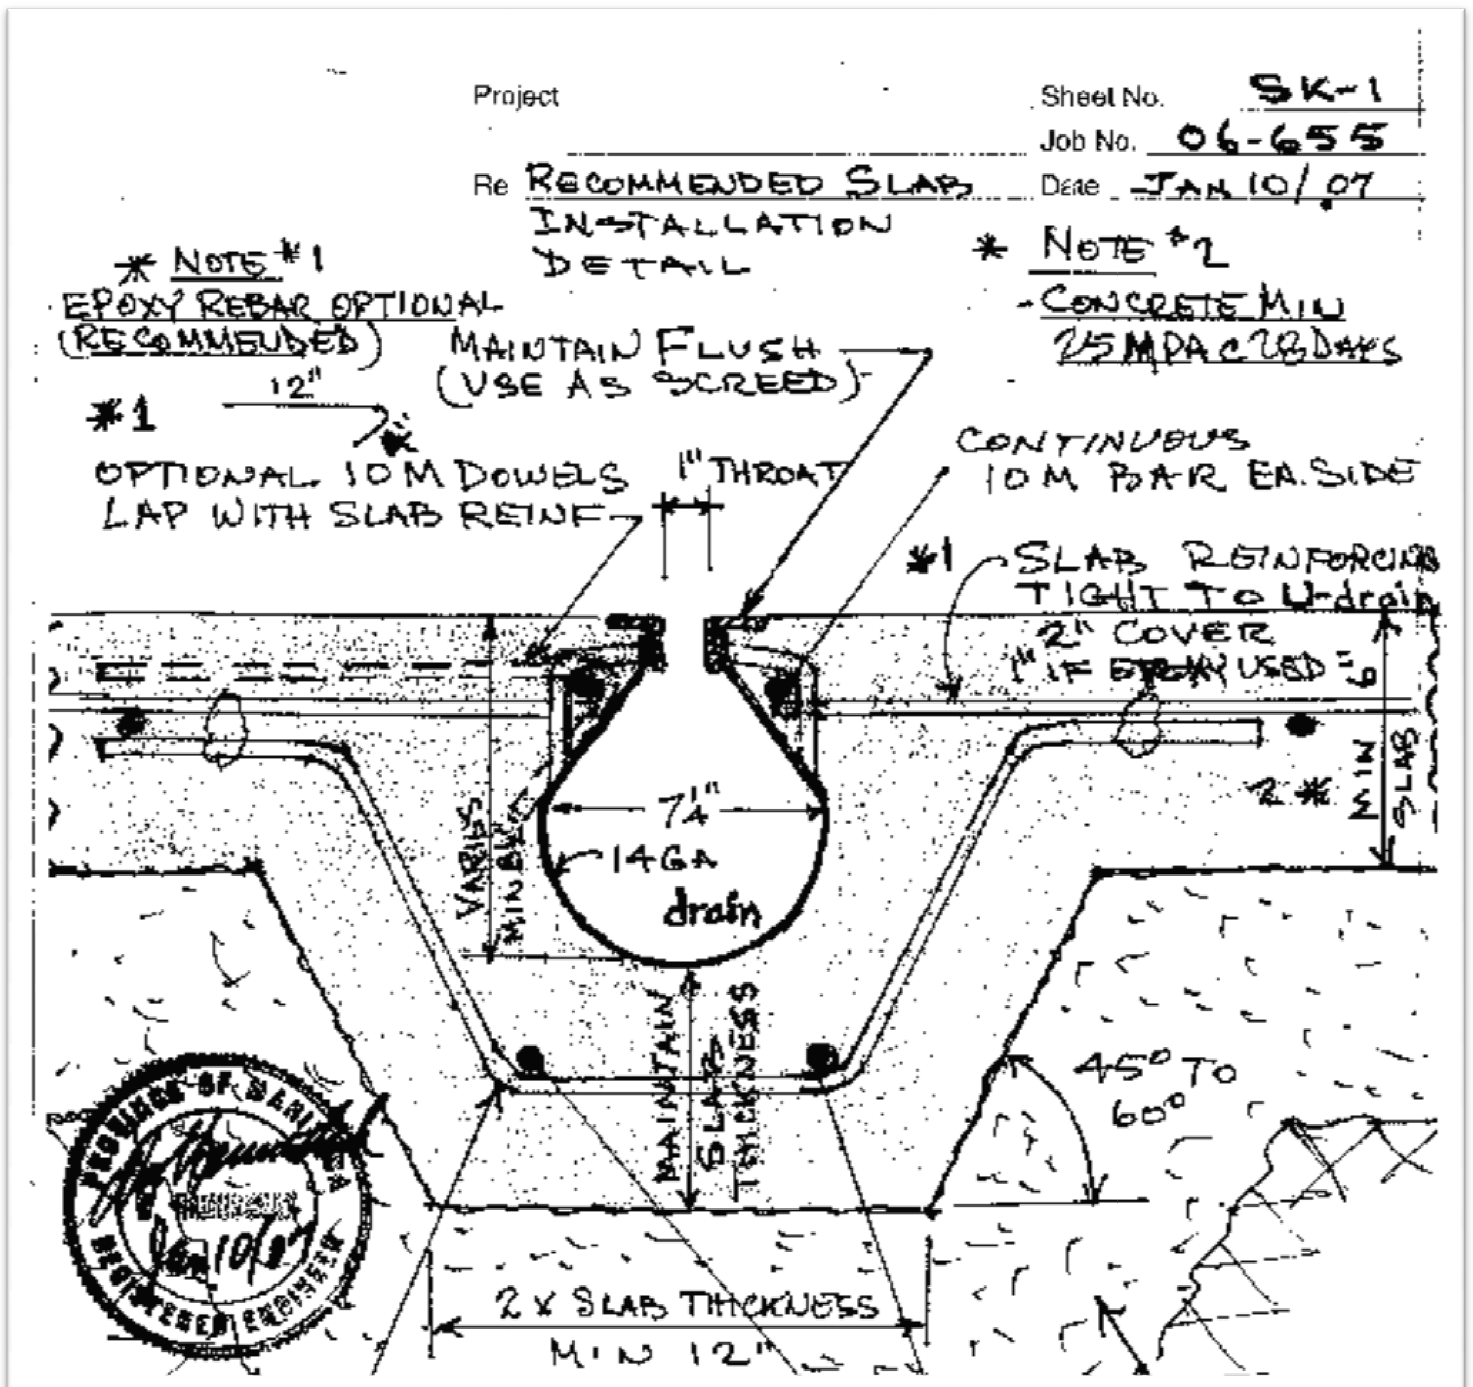 Project
Sheet No. SK-1
Job No. 06-655
Re RECOMMENDED SLAB
INSTALLATION
DETAIL
Date JAN 10/07
* NOTE #1
EPOXY REBAR OPTIONAL
(RECOMMENDED)
* NOTE #2
- CONCRETE MIN
25 MPA C 28 DAYS
MAINTAIN FLUSH
(USE AS SCREED)
12"
*1
OPTIONAL 10M DOWELS
LAP WITH SLAB REINF
1" THROAT
CONTINUOUS
10M BAR EA. SIDE
*1 SLAB REINFORCING
TIGHT TO U-drain
2" COVER
1" IF EPOXY USED
6"
MIN
SLAB
2*
7 1/4"
14GA
drain
VARIES
MIN
MAINTAIN
SLAB
THICKNESS
45° TO
60°
2 X SLAB THICKNESS
MIN 12"
PROVINCE OF MANITOBA
Jan 10/07
REGISTERED ENGINEER